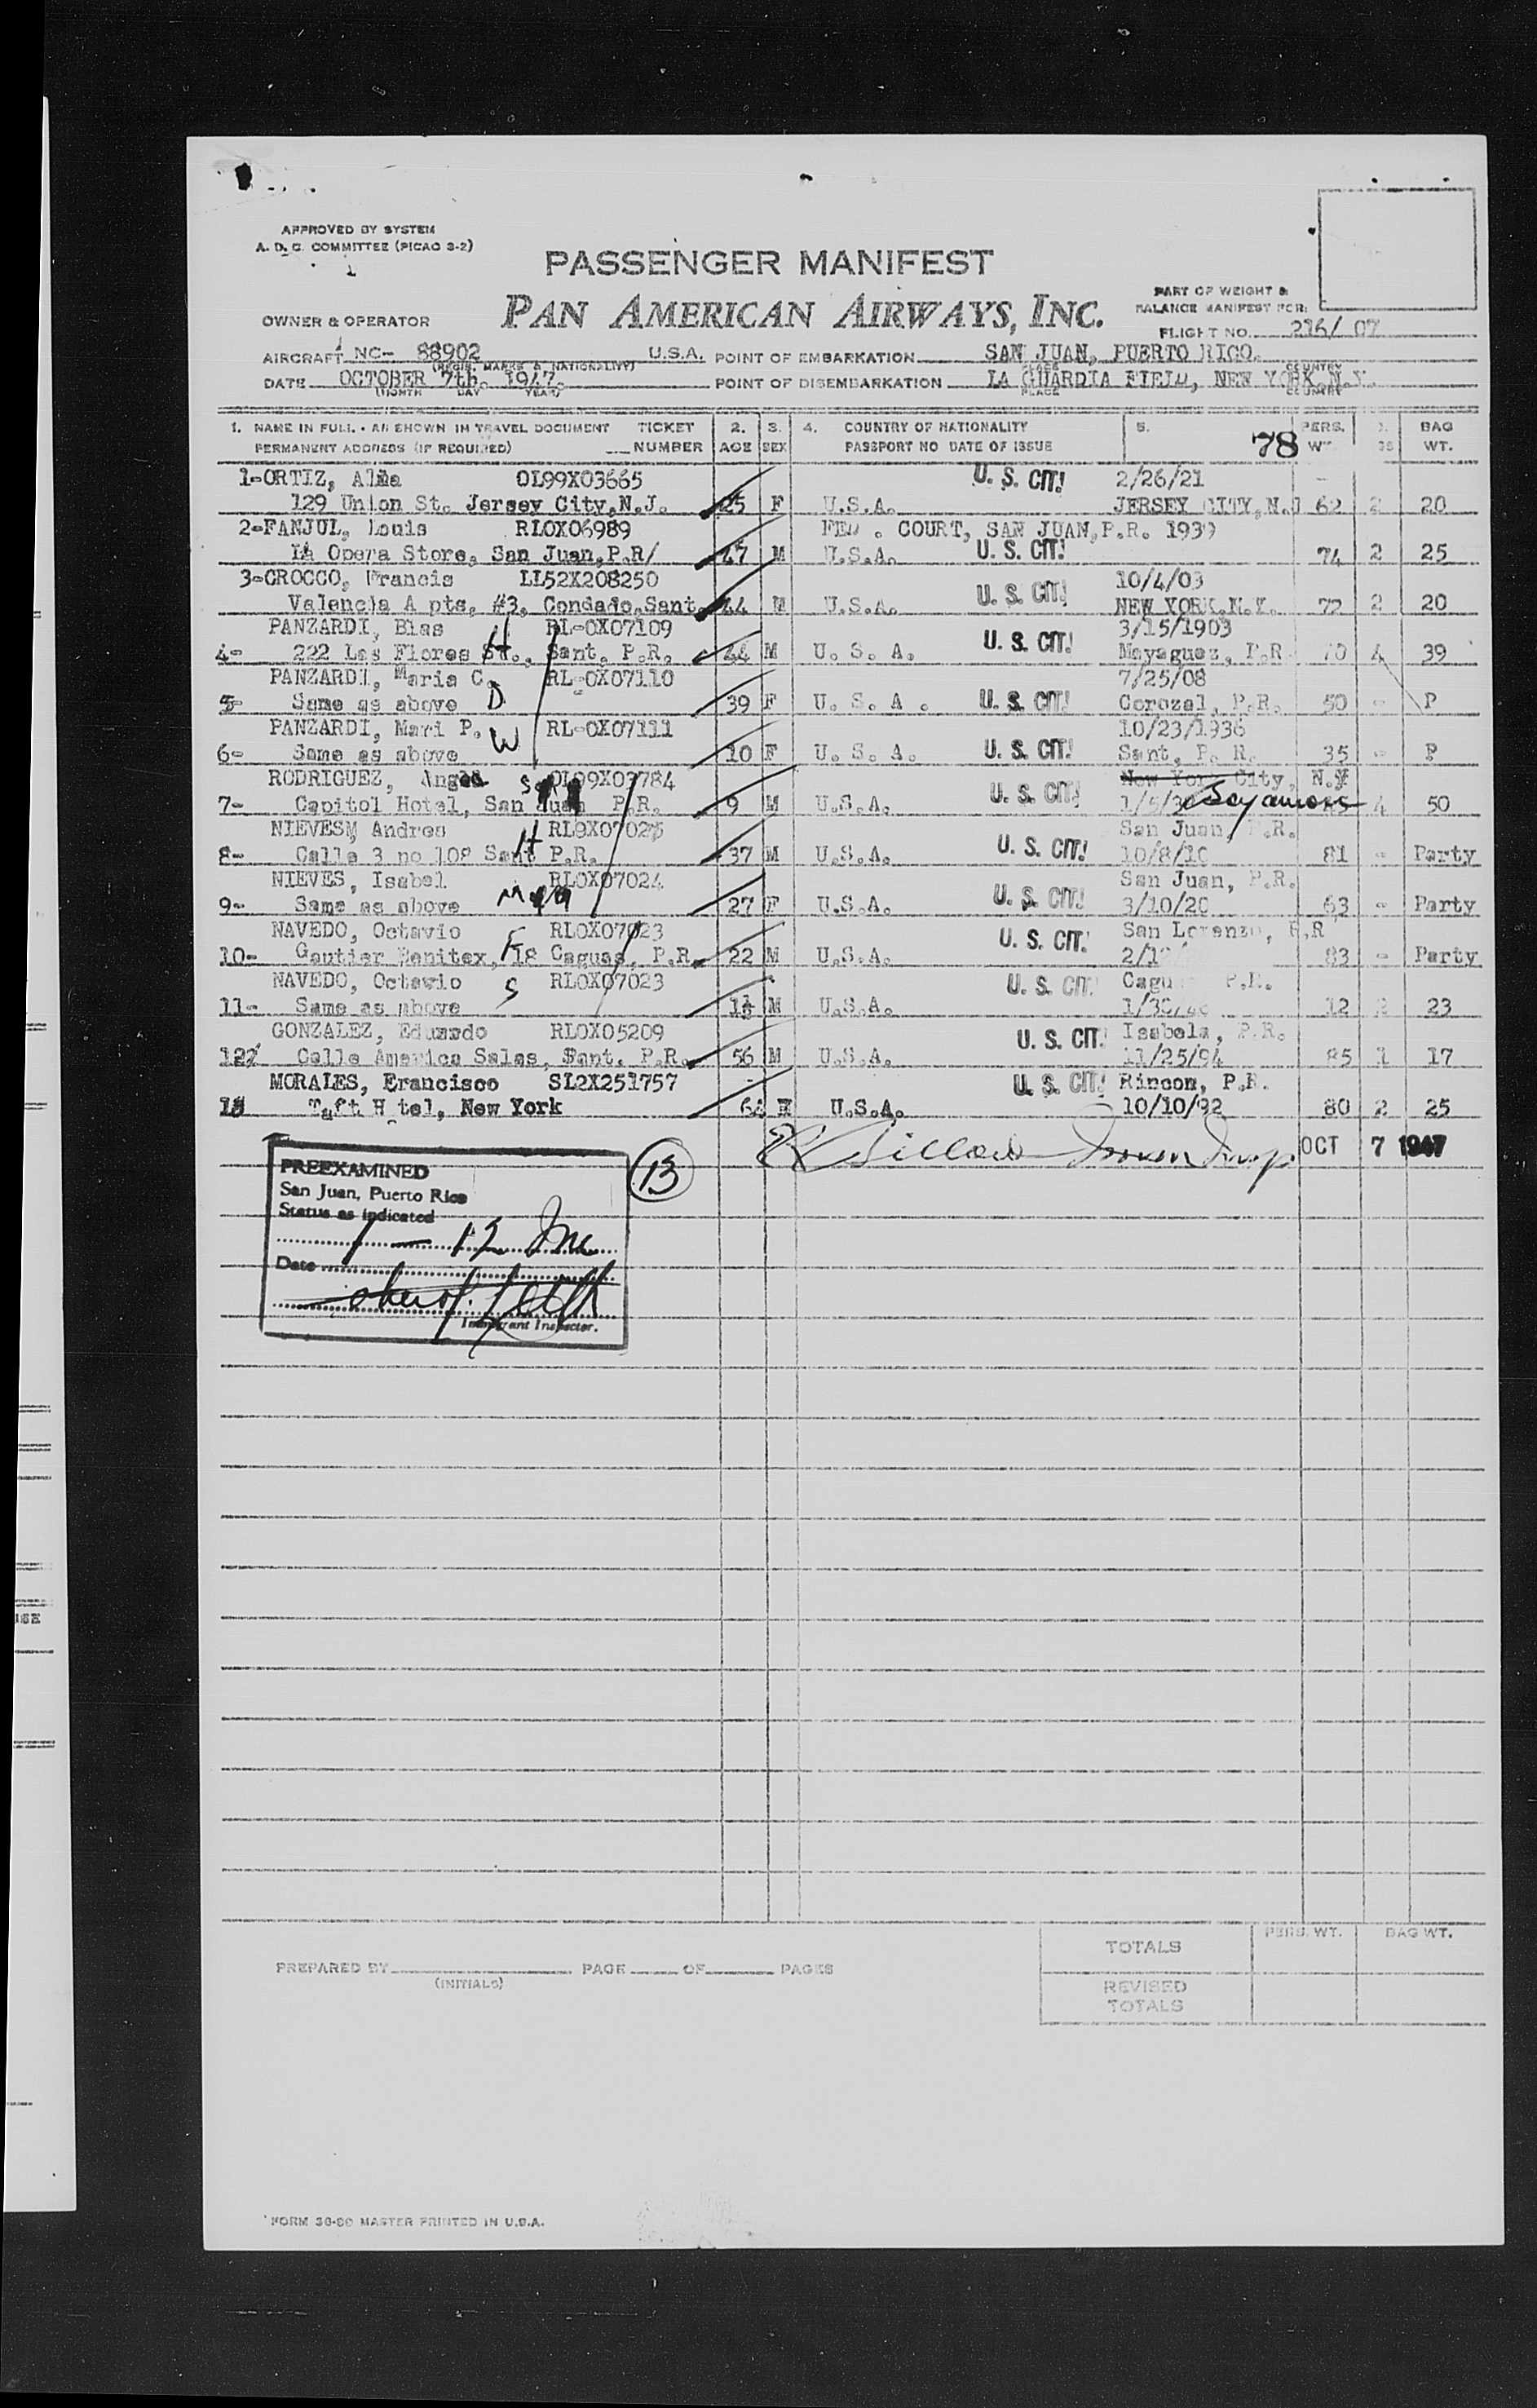 APPROVED BY SYSTEM
A. D. C. COMMITTEE (PICAO S-2)
PASSENGER MANIFEST
PAN AMERICAN AIRWAYS, INC.
PART OF WEIGHT &
BALANCE MANIFEST FOR:
OWNER & OPERATOR
FLIGHT NO. 216/ 07
AIRCRAFT NC- 88902 U.S.A. POINT OF EMBARKATION SAN JUAN, PUERTO RICO.
(REGIS. MARKS & NATIONALITY) PLACE COUNTRY
DATE OCTOBER 7th. 1947. POINT OF DISEMBARKATION LA GUARDIA FIELD, NEW YORK.N.Y.
(MONTH DAY YEAR) PLACE COUNTRY
1. NAME IN FULL - AS SHOWN IN TRAVEL DOCUMENT TICKET 2. 3. 4. COUNTRY OF NATIONALITY 5. PERS. BAG
PERMANENT ADDRESS (IF REQUIRED) NUMBER AGE SEX PASSPORT NO DATE OF ISSUE 78 WT. WT.
1-ORTIZ, Alma OL99X03665 U. S. CIT! 2/26/21
129 Union St. Jersey City,N.J. 25 F U.S.A. JERSEY CITY,N.J 62 2 20
2-FANJUL, Louis RLOX06989 FED . COURT, SAN JUAN,P.R. 1939
LA Opera Store, San Juan,P.R/ 47 M U.S.A. U. S. CIT! 74 2 25
3-CROCCO, Francis LL52X208250 10/4/03
Valencia A pts, #3, Condado,Sant. 44 M U.S.A. U. S. CIT! NEW YORK.N.Y. 72 2 20
PANZARDI, Blas H RL-OX07109 3/15/1903
4- 222 Las Flores St., Sant. P.R. 44 M U. S. A. U. S. CIT! Mayaguez, P.R 70 4 39
PANZARDI, Maria C. RL-OX07110 7/25/08
5- Same as above D 39 F U. S. A . U. S. CIT! Corozal, P.R. 50 - P
PANZARDI, Mari P. W RL-OX07111 10/23/1936
6- Same as above 10 F U. S. A. U. S. CIT! Sant, P. R. 35 - P
RODRIGUEZ, Angel OL99X03784 New York City, N.Y
7- Capitol Hotel, San Juan P.R. 9 M U.S.A. U. S. CIT! Bayamon 4 50
NIEVESM Andres H San Juan, P.R.
8- Calle 3 no 108 Sant P.R. 37 M U.S.A. U. S. CIT! 10/8/10 81 - Party
NIEVES, Isabel RLOX07024 San Juan, P.R.
9- Same as above 27 F U.S.A. U. S. CIT! 3/10/20 63 - Party
NAVEDO, Octavio F RLOX07023 San Lorenzo, P.R
10- Gautier Benitex, 18 Caguas, P.R. 22 M U.S.A. U. S. CIT! 83 - Party
NAVEDO, Octavio S RLOX07023 P.R.
11- Same as above M U.S.A. U. S. CIT 12 2 23
GONZALEZ, Eduardo RLOX05209 Isabela, P.R.
12 Calle America Salas, Sant. P.R. 56 M U.S.A. U. S. CIT! 11/25/94 85 1 17
MORALES, Francisco SL2X251757 U. S. CIT! Rincon, P.R.
13 Taft H tel, New York M U.S.A. 10/10/82 80 2 25
OCT 7 1947
13
PREEXAMINED
San Juan, Puerto Rico
Status as indicated
1 — 12 Inc
Date
Immigrant Inspector.
TOTALS PERS. WT. BAG WT.
PREPARED BY (INITIALS) PAGE OF PAGES
REVISED
TOTALS
FORM 36-80 MASTER PRINTED IN U.S.A.